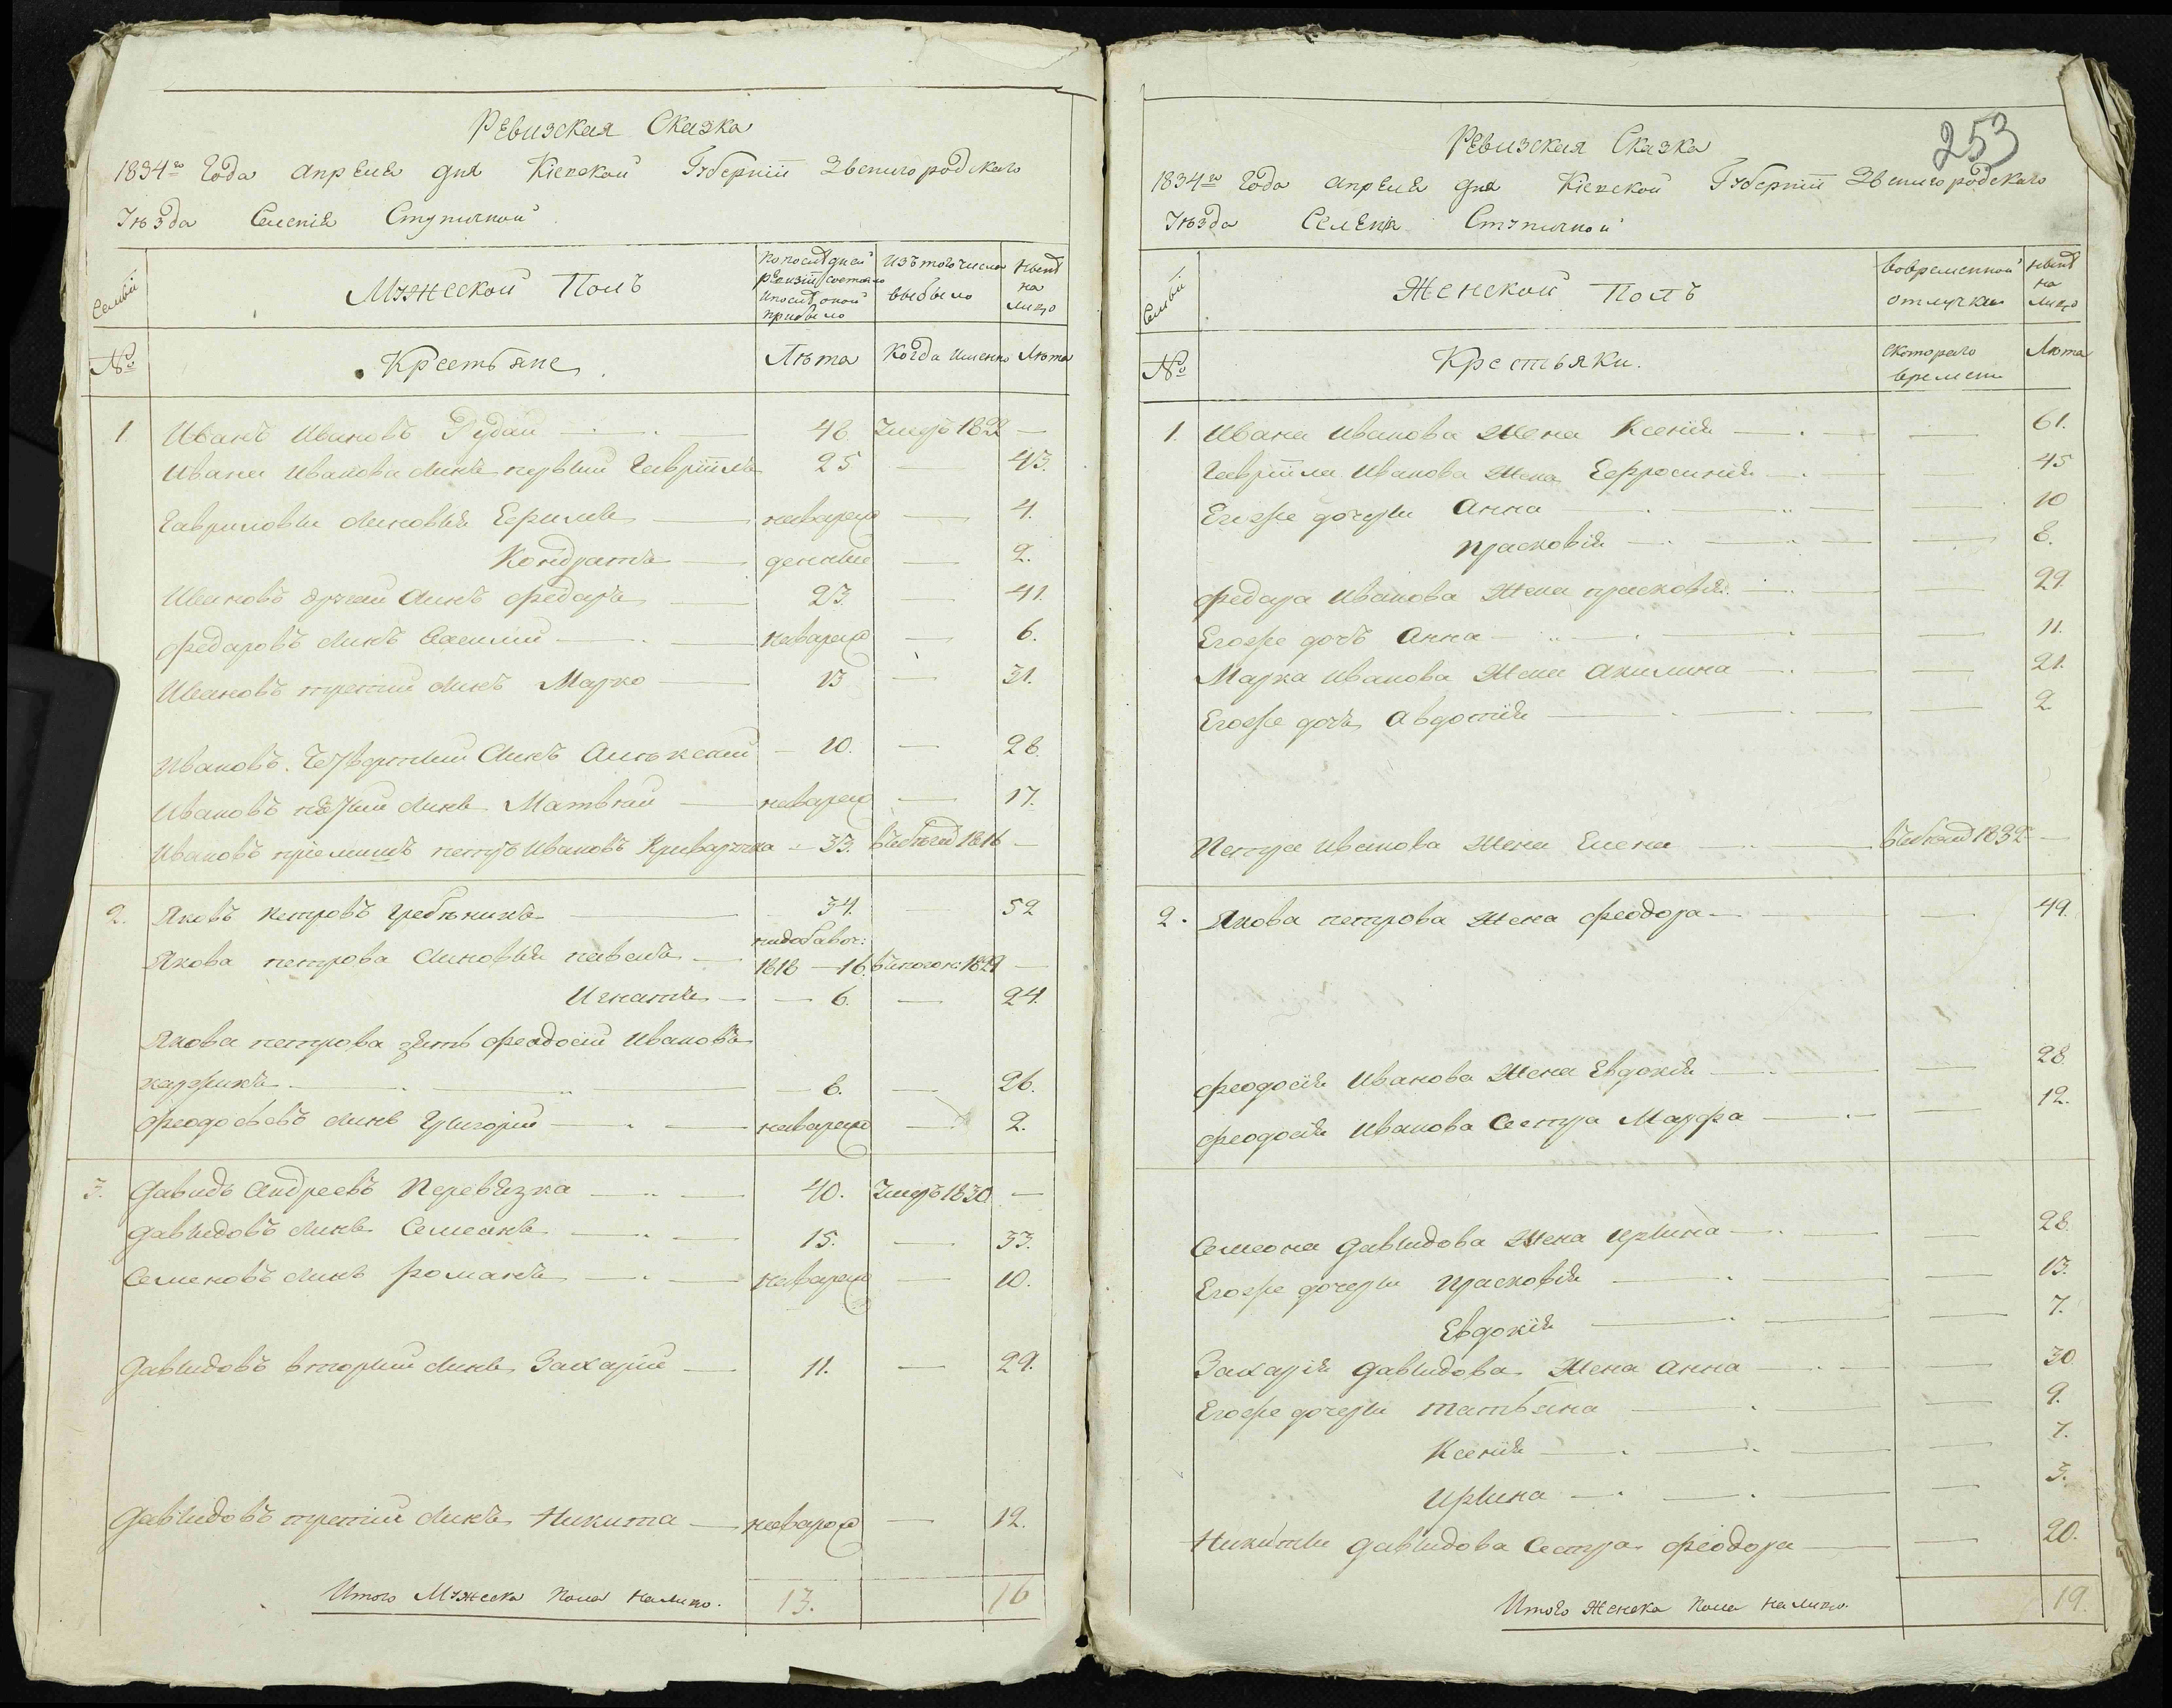 Ревизская Сказка
1834го Года апреля дня Кіевской Губерніи Звенигородскаго
Уѣзда Селенія Ступичной
Семьи Мужеской Полъ По последней ревизіи состояло и после оной прибыло Изъ того числа выбыло Ныне на лицо
№ Крестьяне Лѣта Когда Именно Лѣта
1. Иванъ Ивановъ Рудай 48. Умеръ 1822 —
Ивана Иванова синъ первый Гавріилъ 25 — 43.
Гавриловы синовья Ефимъ новорожд — 4.
Кондратъ — 2.
Ивановъ другій синъ Федаръ 23. — 41.
Федаровъ синъ Василій новорож — 6.
Ивановъ третій синъ Марко 13 — 31.
Ивановъ четвертый синъ Алексей 10. — 28.
Ивановъ пятый синъ Матвей новорож — 17.
Ивановъ пріемишъ петръ Ивановъ 33. въ 1816 —
2. Яковъ петровъ Гребѣникъ 34. 52
Якова петрова синовья павелъ 1818 — 16. 1829 —
Игнатъ — 6. — 24.
Якова петрова зять Феодосій Ивановъ
6. — 26.
Феодосьевъ синъ Григорій новорож — 2.
3. Давидъ Андреевъ Перевязка 40. Умеръ 1830 —
Давидовъ синъ Семеонъ 15. — 33.
Семеновъ синъ романъ новорож — 10.
Давидовъ вторый синъ Захарій 11. — 29.
Давидовъ третій синъ Никита новорож — 12.
Итого Мужеска пола налицо. 13. 16
253
Ревизская Сказка
1834го Года апреля дня Кіевской Губерніи Звенигородскаго
Уѣзда Селенія Ступичной
Семьи Женской Полъ Вовременной отлучки Ныне на лицо
№ Крестьянки. скотораго времени Лѣта
1. Ивана Иванова жена Ксенія — 61.
Гавріила Иванова жена Ефросинія — 45
Егоже дочери Анна — 10
прасковія — 8.
Федара Иванова жена прасковія — 29.
Егоже дочь Анна — 11.
Марка Иванова жена Акилина — 21.
Егоже дочь Авдотія — 2
Петра Иванова жена Елена 1832 —
2. Якова петрова жена Феодора — 49.
Феодосія Иванова жена Евдокія — 28
Феодосія Иванова Сестра Марфа — 12.
Семеона Давидова жена Ирина — 28.
Егоже дочери прасковія — 13.
Евдокія — 7.
Захарія Давидова жена Анна — 30
Егоже дочери татьяна — 9.
Ксенія — 7.
Ирина — 3.
Никиты Давидова Сестра Феодора — 20.
Итого Женска пола налицо. 19.